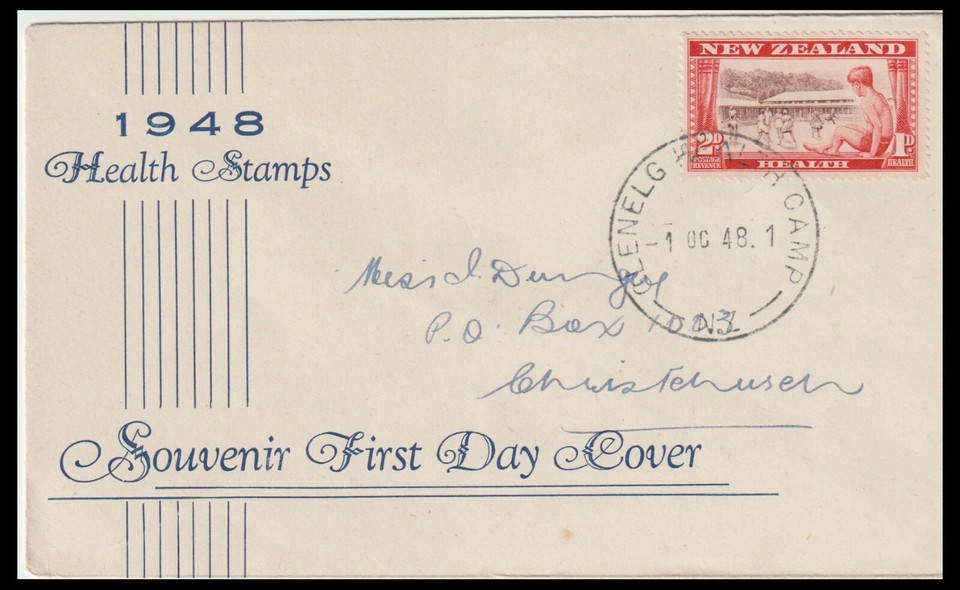 1948
Health Stamps
NEW ZEALAND
2D 1D
POSTAGE REVENUE HEALTH HEALTH
GLENELG HEALTH CAMP
-1 OC 48.1
N.Z
Miss J.
P.O. Box
Christchurch
Souvenir First Day Cover